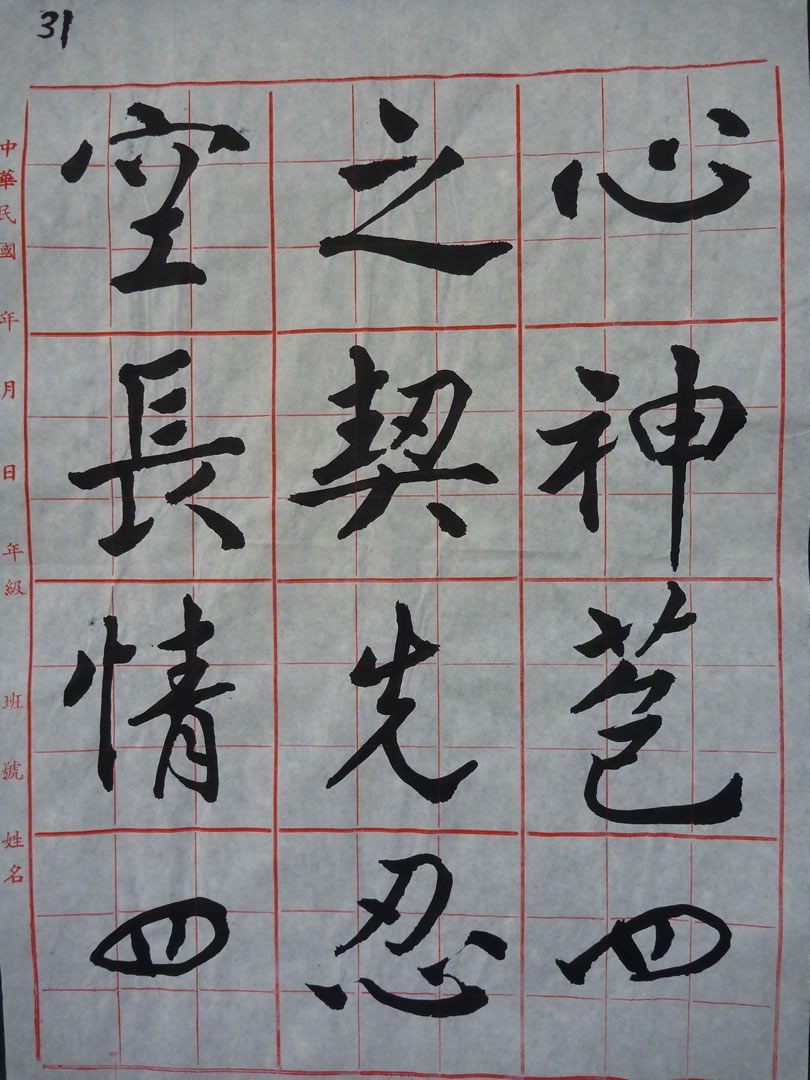 31
空之心
長契神
情先苞
四忍四
中華民國 年 月 日 年級 班 號 姓名